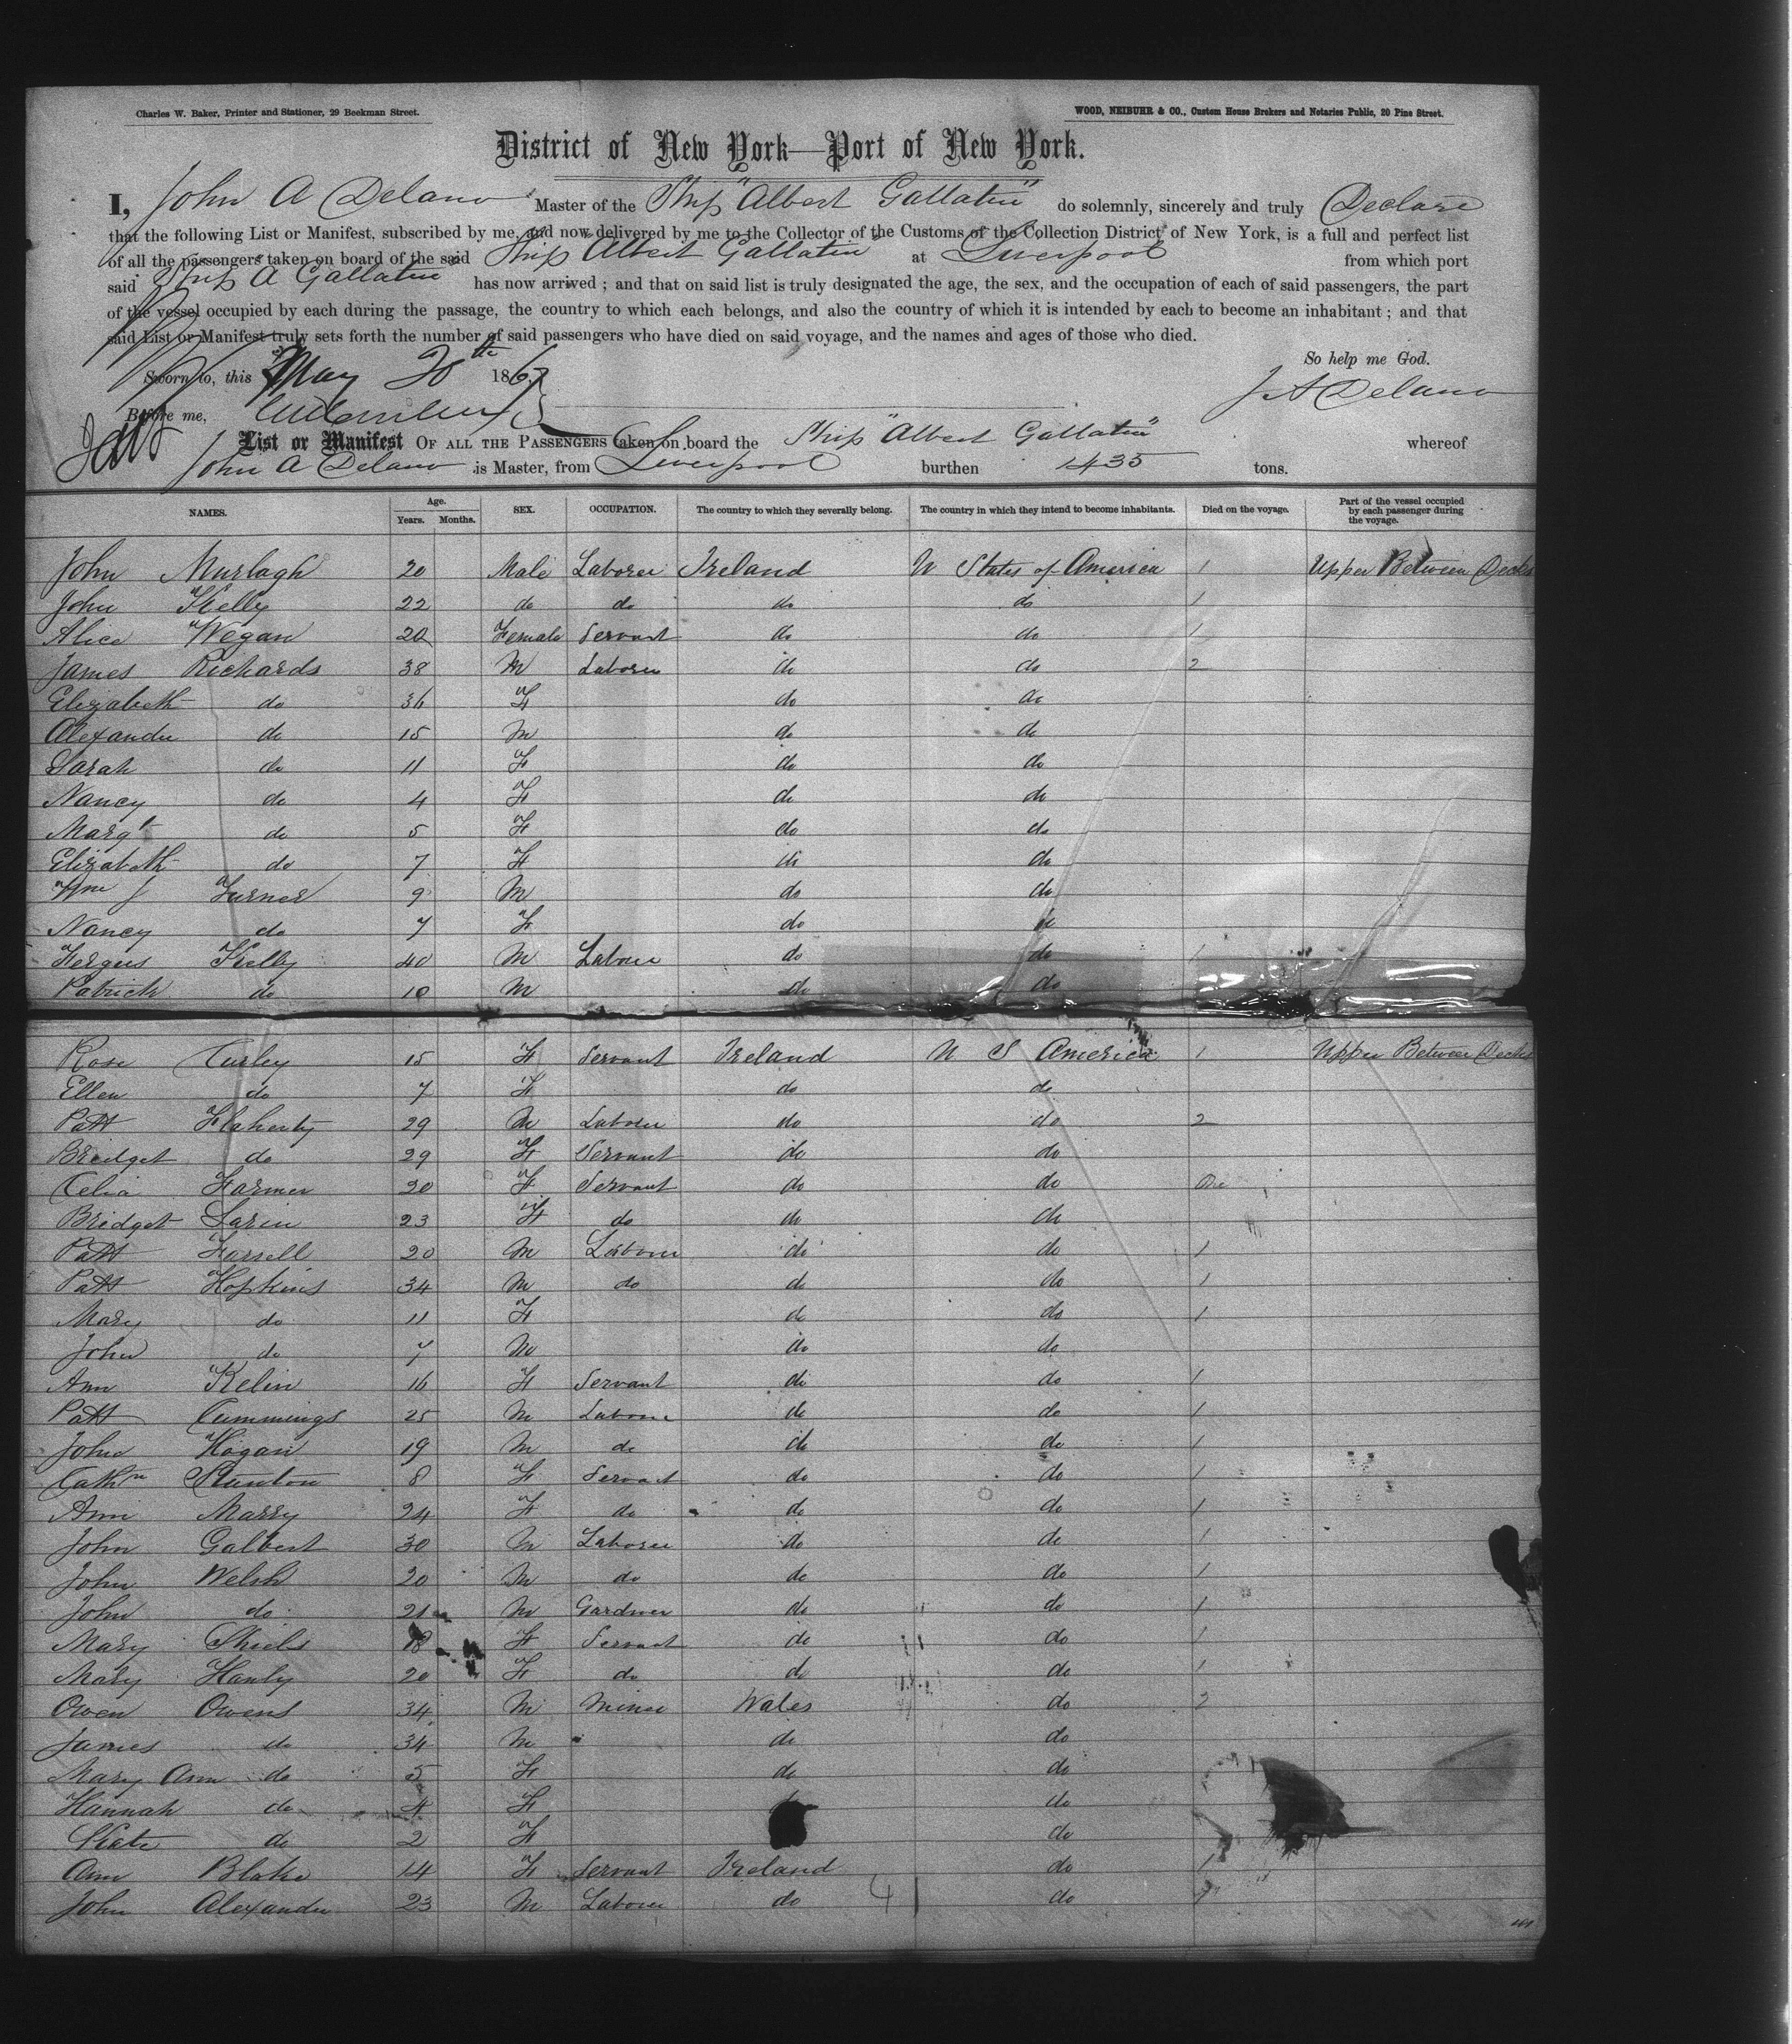 Charles W. Baker, Printer and Stationer, 29 Beekman Street. WOOD, NEIBUHR & CO., Custom House Brokers and Notaries Public, 20 Pine Street.
District of New York—Port of New York.
I, John A Delano Master of the Ship "Albert Gallatin" do solemnly, sincerely and truly Declare
that the following List or Manifest, subscribed by me, and now delivered by me to the Collector of the Customs of the Collection District of New York, is a full and perfect list
of all the passengers taken on board of the said Ship "Albert Gallatin" at Liverpool from which port
said Ship A Gallatin has now arrived ; and that on said list is truly designated the age, the sex, and the occupation of each of said passengers, the part
of the vessel occupied by each during the passage, the country to which each belongs, and also the country of which it is intended by each to become an inhabitant ; and that
said List or Manifest truly sets forth the number of said passengers who have died on said voyage, and the names and ages of those who died.
So help me God.
Sworn to, this May 20th 1867
J A Delano
Before me,
List or Manifest OF ALL THE PASSENGERS taken on board the Ship "Albert Gallatin" whereof
John A Delano is Master, from Liverpool burthen 1435 tons.
NAMES. Age. Years. Months. SEX. OCCUPATION. The country to which they severally belong. The country in which they intend to become inhabitants. Died on the voyage. Part of the vessel occupied by each passenger during the voyage.
John Murtagh 20 Male Laborer Ireland U States of America 1 Upper Between Decks
John Kelly 22 do do do do 1
Alice Wegan 20 Female Servant do do 1
James Richards 38 M Laborer do do 2
Elizabeth do 36 F do do
Alexander do 15 M do do
Sarah do 11 F do do
Nancy do 4 F do do
Margt do 5 F do do
Elizabeth do 7 F do do
Wm J Turner 9 M do do
Nancy do 7 F do do
Fergus Kelly 40 M Laborer do do 1
Patrick do 10 M do do
Rose Curley 15 F Servant Ireland U S America 1 Upper Between Decks
Ellen do 7 F do do
Patt Flaherty 29 M Laborer do do 2
Bridget do 29 F Servant do do
Celia Farmer 20 F Servant do do
Bridget Larin 23 F do do do
Patt Farrell 20 M Laborer do do 1
Patt Hopkins 34 M do do do 1
Mary do 11 F do do 1
John do 7 M do do
Ann Kelin 16 F Servant do do 1
Patt Cummings 25 M Laborer do do 1
John Hogan 19 M do do do 1
Cathn Stanton 8 F Servant do do 1
Ann Marry 24 F do do do 1
John Galbert 30 M Laborer do do 1
John Welsh 20 M do do do 1
John do 21 M Gardner do do 1
Mary Shiels 18 F Servant do do 1
Mary Hanly 20 F do do do 1
Owen Owens 34 M Miner Wales do 2
James do 34 M do do
Mary Ann do 5 F do do
Hannah do 4 F do
Kate do 2 F do
Ann Blake 14 F Servant Ireland do 1
John Alexander 23 M Laborer do do